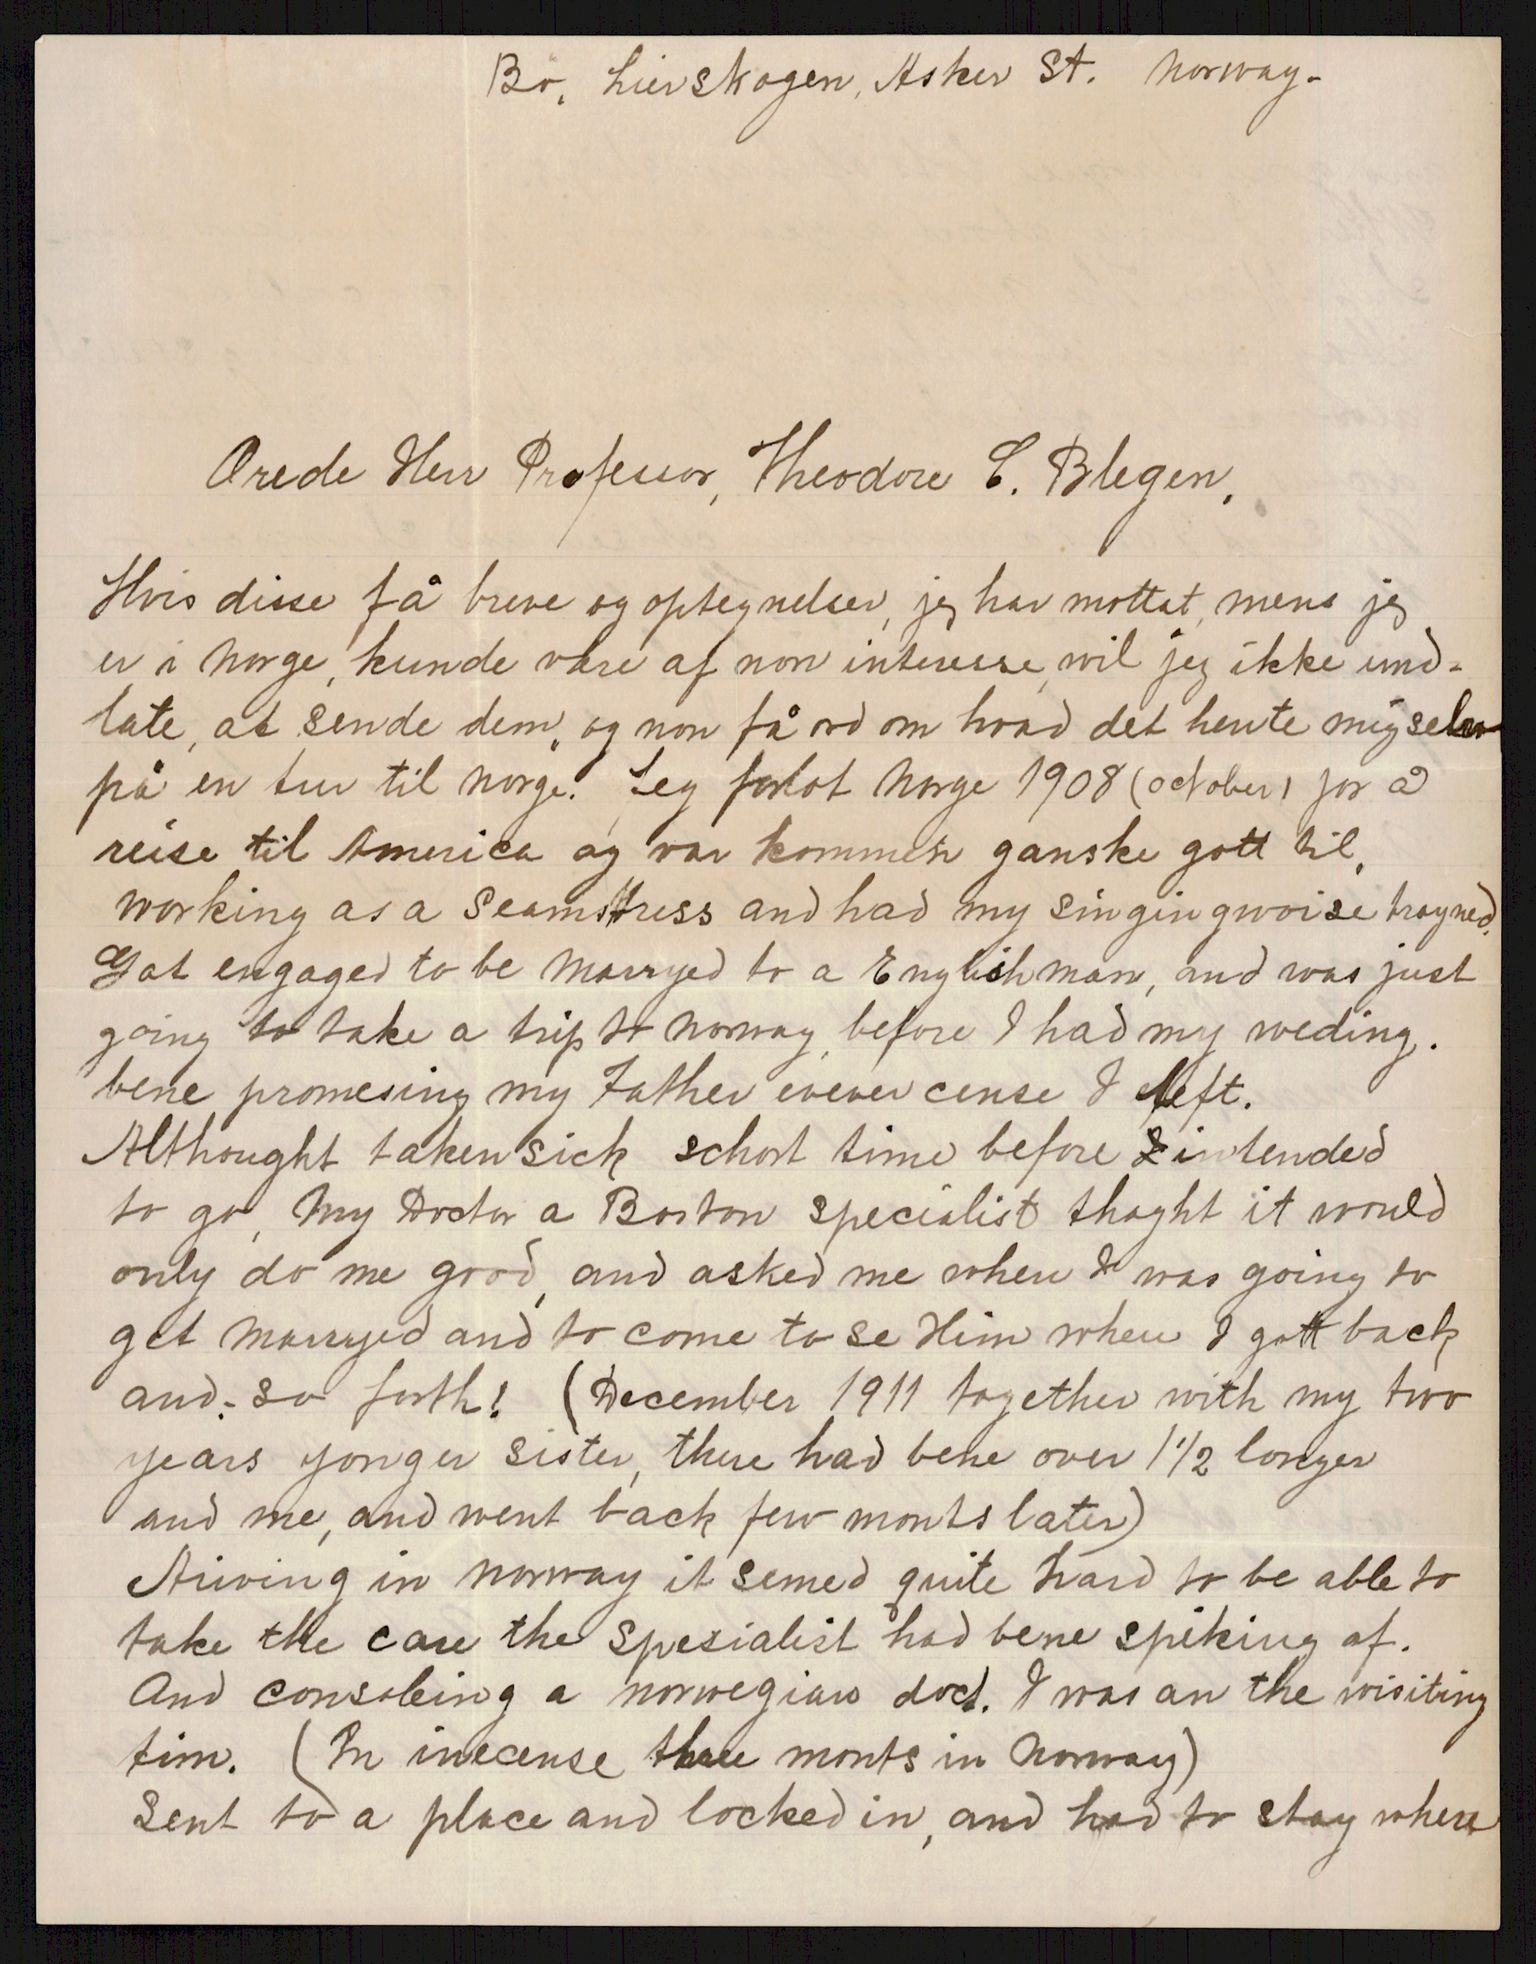 Bö, Lierskogen, Asker St. Norway-
Ærede Herr Professor, Theodore C. Blegen,
Hvis disse få breve og optegnelser, jeg har mottat, mens jeg
er i Norge, kunde være af non interesse, vil jeg ikke und-
late, at sende dem, og non få ord om hvad det hente mig selv
på en tur til Norge. Jeg forlot Norge 1908 (october) for å
reise til America og var kommen ganske gott til,
working as a Seamstress and had my singing woise trayned.
Gat engaged to be Marryed to a English man, and was just
going to take a trip to Norway, before I had my weding.
bene promesing my Father evever cense I left.
Althought taken sick schort time before I intended
to go, My Doctor a Boston specialist thoght it would
only do me good, and asked me when I was going to
get Marryed and to come to se Him when I gott back
and so forth! (December 1911 together with my two
years yonger sister, there had bene over 1 1/2 longer
and me, and went back few monts later)
Ariving in Norway it semed quite hard to be able to
take the care the spesialist had bene spiking af.
And consoleing a norwegian doct. I was an the wisiting
tim. (In inecense three monts in Norway)
Sent to a place and locked in, and had to stay where